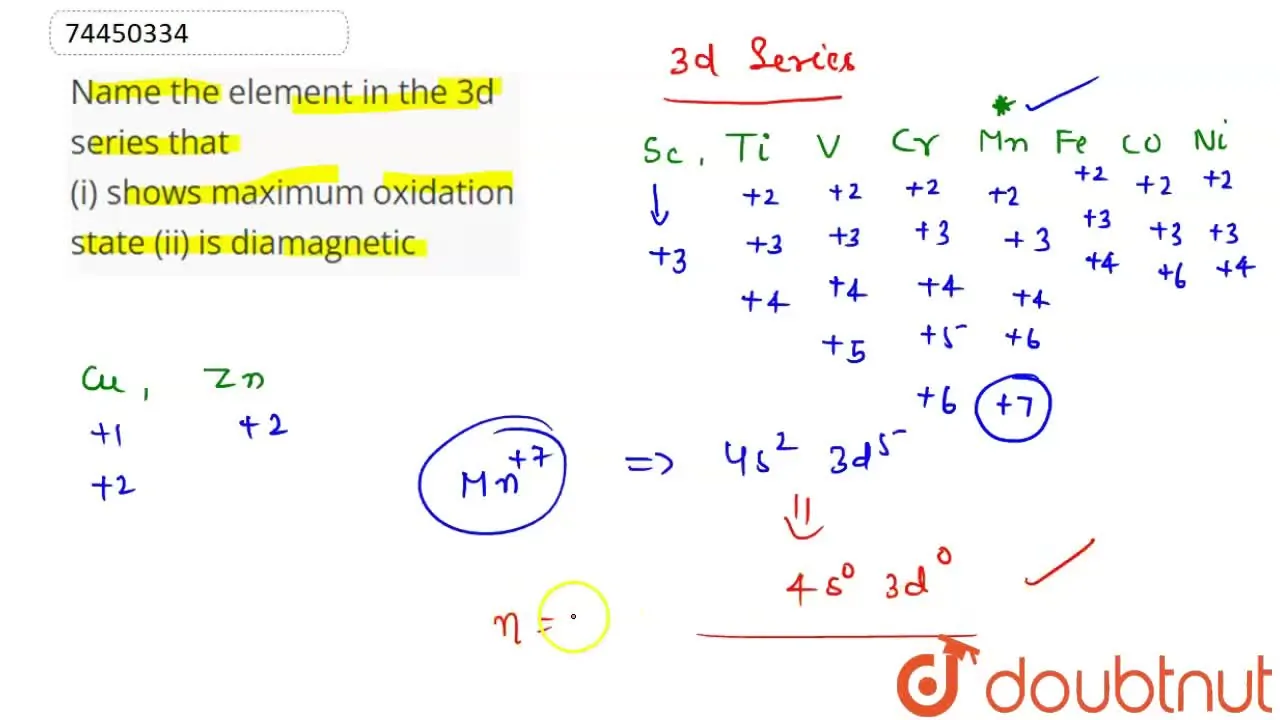 74450334
Name the element in the 3d
series that
(i) shows maximum oxidation
state (ii) is diamagnetic
3d Series
*
Sc, Ti V Cr Mn Fe CO Ni
+2 +2 +2 +2 +2 +2 +2
+3 +3 +3 +3 +3 +3 +3 +3
+4 +4 +4 +4 +4 +6 +4
+5 +5 +6
+6 +7
Cu, Zn
+1 +2
+2
Mn+7 => 4s2 3d5
4s0 3d0
n =
doubtnut